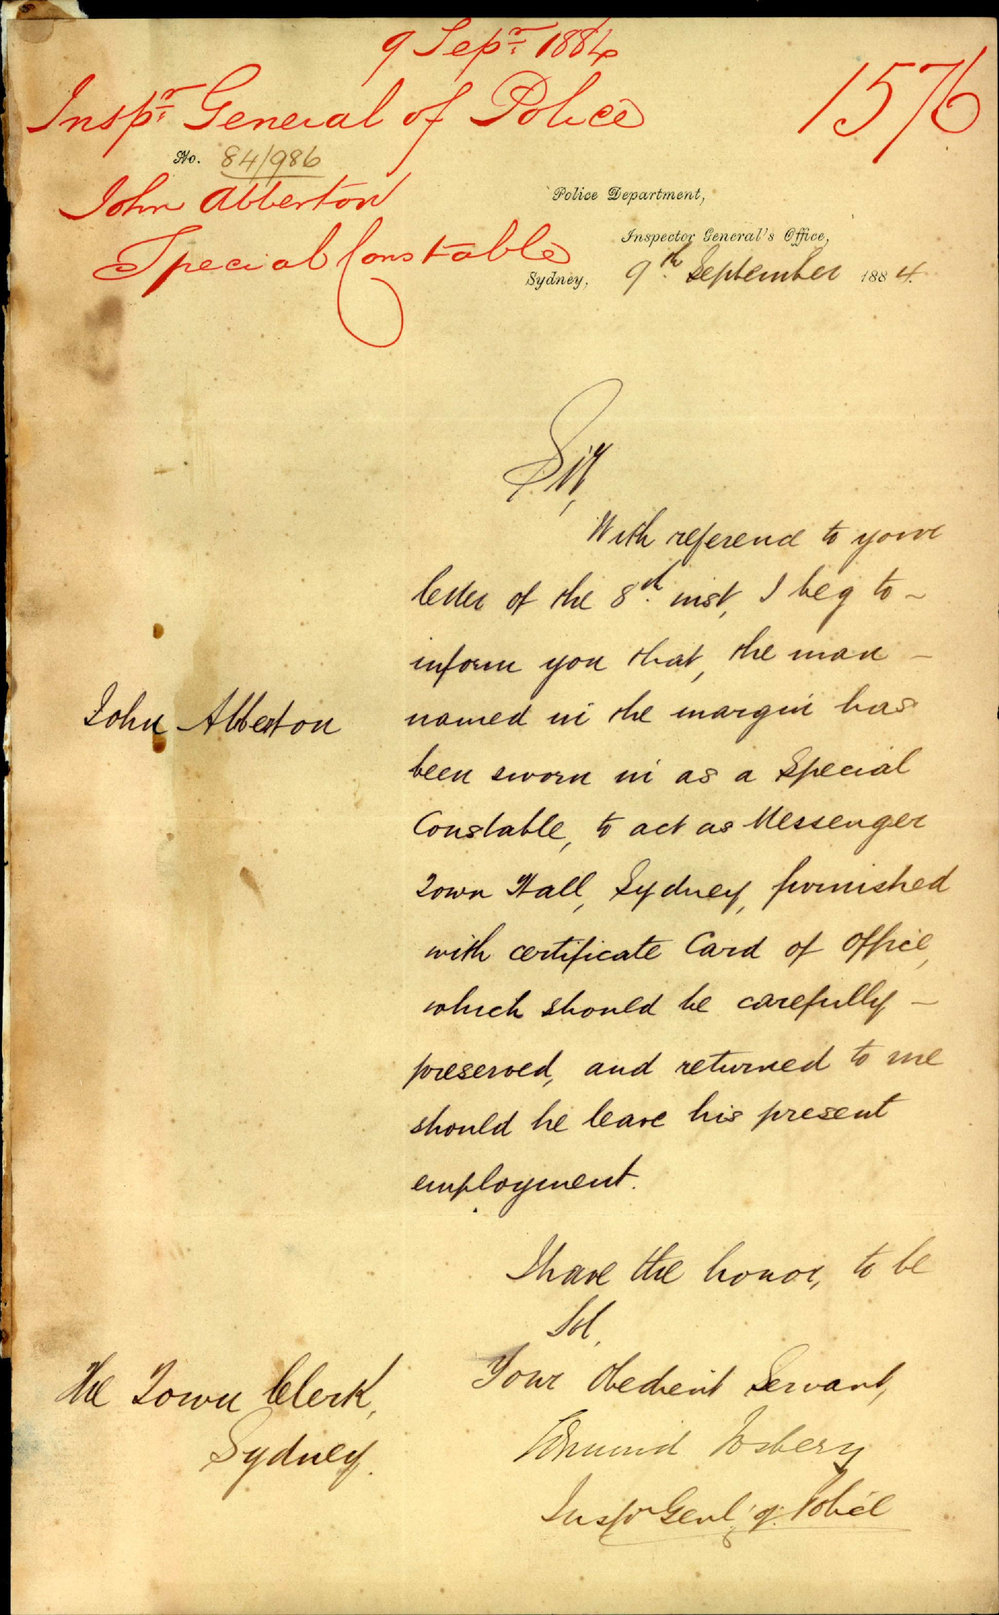 9 Sepr. 1884
1576
Inspr. General of Police
No. 84/986
John Abberton
Special Constable
Police Department,
Inspector General's Office,
Sydney, 9th September 1884.
Sir,
With reference to your
letter of the 8th inst, I beg to ~
inform you that, the man –
John Abberton
named in the margin has
been sworn in as a Special
Constable, to act as Messenger
Town Hall, Sydney, furnished
with certificate Card of office,
which should be carefully –
preserved, and returned to me
should he leave his present
employment.
I have the honor, to be
Sir,
Your Obedient Servant,
Edmund Fosbery
Inspr Genl, of Police
The Town Clerk,
Sydney.